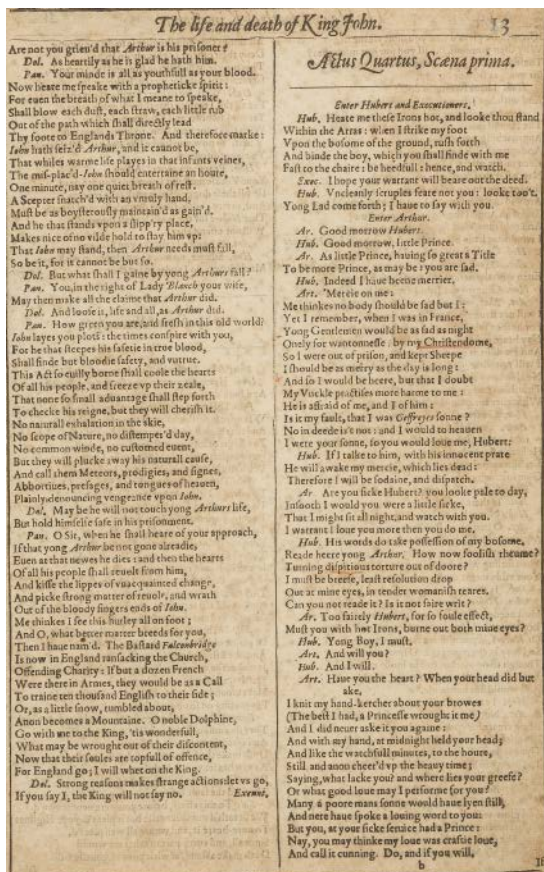 The life and death of King John.
13
Are not you grieu'd that Arthur is his prisoner?
Dol. As heartily as he is glad he hath him.
Pan. Your minde is all as youthfull as your blood.
Now heare me speake with a propheticke spirit:
For euen the breath of what I meane to speake,
Shall blow each dust, each straw, each little rub
Out of the path which shall directly lead
Thy foote to Englands Throne. And therefore marke:
Iohn hath seiz'd Arthur, and it cannot be,
That whiles warme life playes in that infants veines,
The mis-plac'd-Iohn should entertaine an houre,
One minute, nay one quiet breath of rest.
A Scepter snatch'd with an vnruly hand,
Must be as boysterously maintain'd as gain'd.
And he that stands vpon a slipp'ry place,
Makes nice of no vilde hold to stay him vp:
That Iohn may stand, then Arthur needs must fall,
So be it, for it cannot be but so.
Dol. But what shall I gaine by yong Arthurs fall?
Pan. You, in the right of Lady Blanch your wife,
May then make all the claime that Arthur did.
Dol. And loose it, life and all, as Arthur did.
Pan. How green you are, and fresh in this old world?
Iohn layes you plots: the times conspire with you,
For he that steepes his safetie in true blood,
Shall finde but bloodie safety, and vntrue.
This Act so euilly borne shall coole the hearts
Of all his people, and freeze vp their zeale,
That none so small aduantage shall step forth
To checke his reigne, but they will cherish it.
No naturall exhalation in the skie,
No scope of Nature, no distemper'd day,
No common winde, no customed euent,
But they will plucke away his naturall cause,
And call them Meteors, prodigies, and signes,
Abbortiues, presages, and tongues of heauen,
Plainly denouncing vengeance vpon Iohn.
Dol. May be he will not touch yong Arthurs life,
But hold himselfe safe in his prisonment.
Pan. O Sir, when he shall heare of your approach,
If that yong Arthur be not gone alreadie,
Euen at that newes he dies: and then the hearts
Of all his people shall reuolt from him,
And kisse the lippes of vnacquainted change,
And picke strong matter of reuolt, and wrath
Out of the bloody fingers ends of Iohn.
Me thinkes I see this hurley all on foot;
And O, what better matter breeds for you,
Then I haue nam'd. The Bastard Falconbridge
Is now in England ransacking the Church,
Offending Charity: If but a dozen French
Were there in Armes, they would be as a Call
To traine ten thousand English to their side;
Or, as a little snow, tumbled about,
Anon becomes a Mountaine. O noble Dolphine,
Go with me to the King, 'tis wonderfull,
What may be wrought out of their discontent,
Now that their soules are topfull of offence,
For England go; I will whet on the King.
Dol. Strong reasons makes strange actions: let vs go,
If you say I, the King will not say no. Exeunt.
Actus Quartus, Scæna prima.
Enter Hubert and Executioners.
Hub. Heate me these Irons hot, and looke thou stand
Within the Arras: when I strike my foot
Vpon the bosome of the ground, rush forth
And binde the boy, which you shall finde with me
Fast to the chaire: be heedfull: hence, and watch.
Exec. I hope your warrant will beare out the deed.
Hub. Vncleanly scruples feare not you: looke too't.
Yong Lad come forth; I haue to say with you.
Enter Arthur.
Ar. Good morrow Hubert.
Hub. Good morrow, little Prince.
Ar. As little Prince, hauing so great a Title
To be more Prince, as may be: you are sad.
Hub. Indeed I haue beene merrier.
Art. 'Mercie on me:
Me thinkes no body should be sad but I:
Yet I remember, when I was in France,
Yong Gentlemen would be as sad as night
Onely for wantonnesse: by my Christendome,
So I were out of prison, and kept Sheepe
I should be as merry as the day is long:
And so I would be heere, but that I doubt
My Vnckle practises more harme to me:
He is affraid of me, and I of him:
Is it my fault, that I was Geffreyes sonne?
No in deede is't not: and I would to heauen
I were your sonne, so you would loue me, Hubert:
Hub. If I talke to him, with his innocent prate
He will awake my mercie, which lies dead:
Therefore I will be sodaine, and dispatch.
Ar Are you sicke Hubert? you looke pale to day,
Insooth I would you were a little sicke,
That I might sit all night, and watch with you.
I warrant I loue you more then you do me.
Hub. His words do take possession of my bosome.
Reade heere yong Arthur. How now foolish rheume?
Turning dispitious torture out of doore?
I must be breefe, least resolution drop
Out at mine eyes, in tender womanish teares.
Can you not reade it? Is it not faire writ?
Ar. Too fairely Hubert, for so foule effect,
Must you with hot Irons, burne out both mine eyes?
Hub. Yong Boy, I must.
Art. And will you?
Hub. And I will.
Art. Haue you the heart? When your head did but
ake,
I knit my hand-kercher about your browes
(The best I had, a Princesse wrought it me)
And I did neuer aske it you againe:
And with my hand, at midnight held your head;
And like the watchfull minutes, to the houre,
Still and anon cheer'd vp the heauy time;
Saying, what lacke you? and where lies your greefe?
Or what good loue may I performe for you?
Many a poore mans sonne would haue lyen still,
And nere haue spoke a louing word to you:
But you, at your sicke seruice had a Prince:
Nay, you may thinke my loue was craftie loue,
And call it cunning. Do, and if you will,
b
If